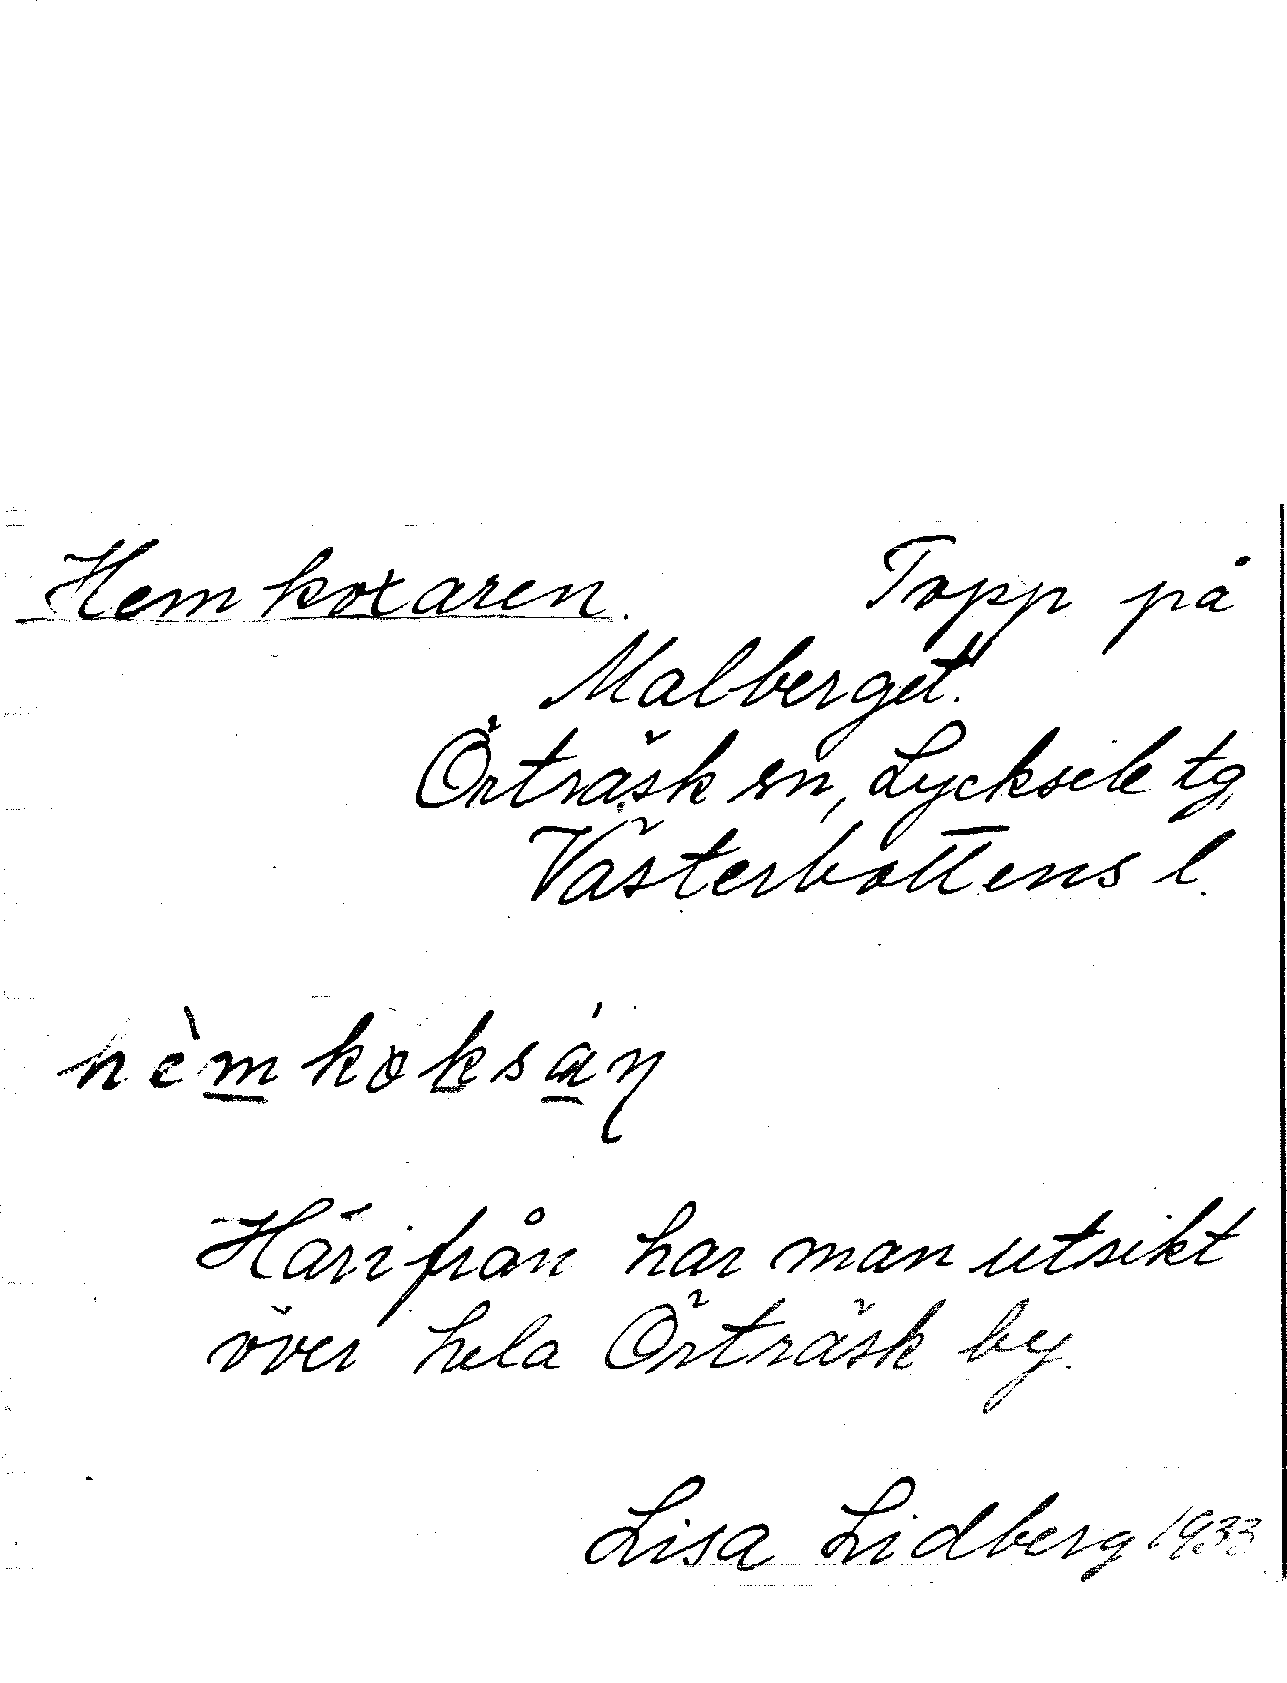 Hemkoxaren. Topp på
Malberget.
Örträsk sn, Lycksele tg,
Västerbottens l.
hèmkoksáṇ
Härifrån har man utsikt
över hela Örträsk by.
Lisa Lidberg 1933